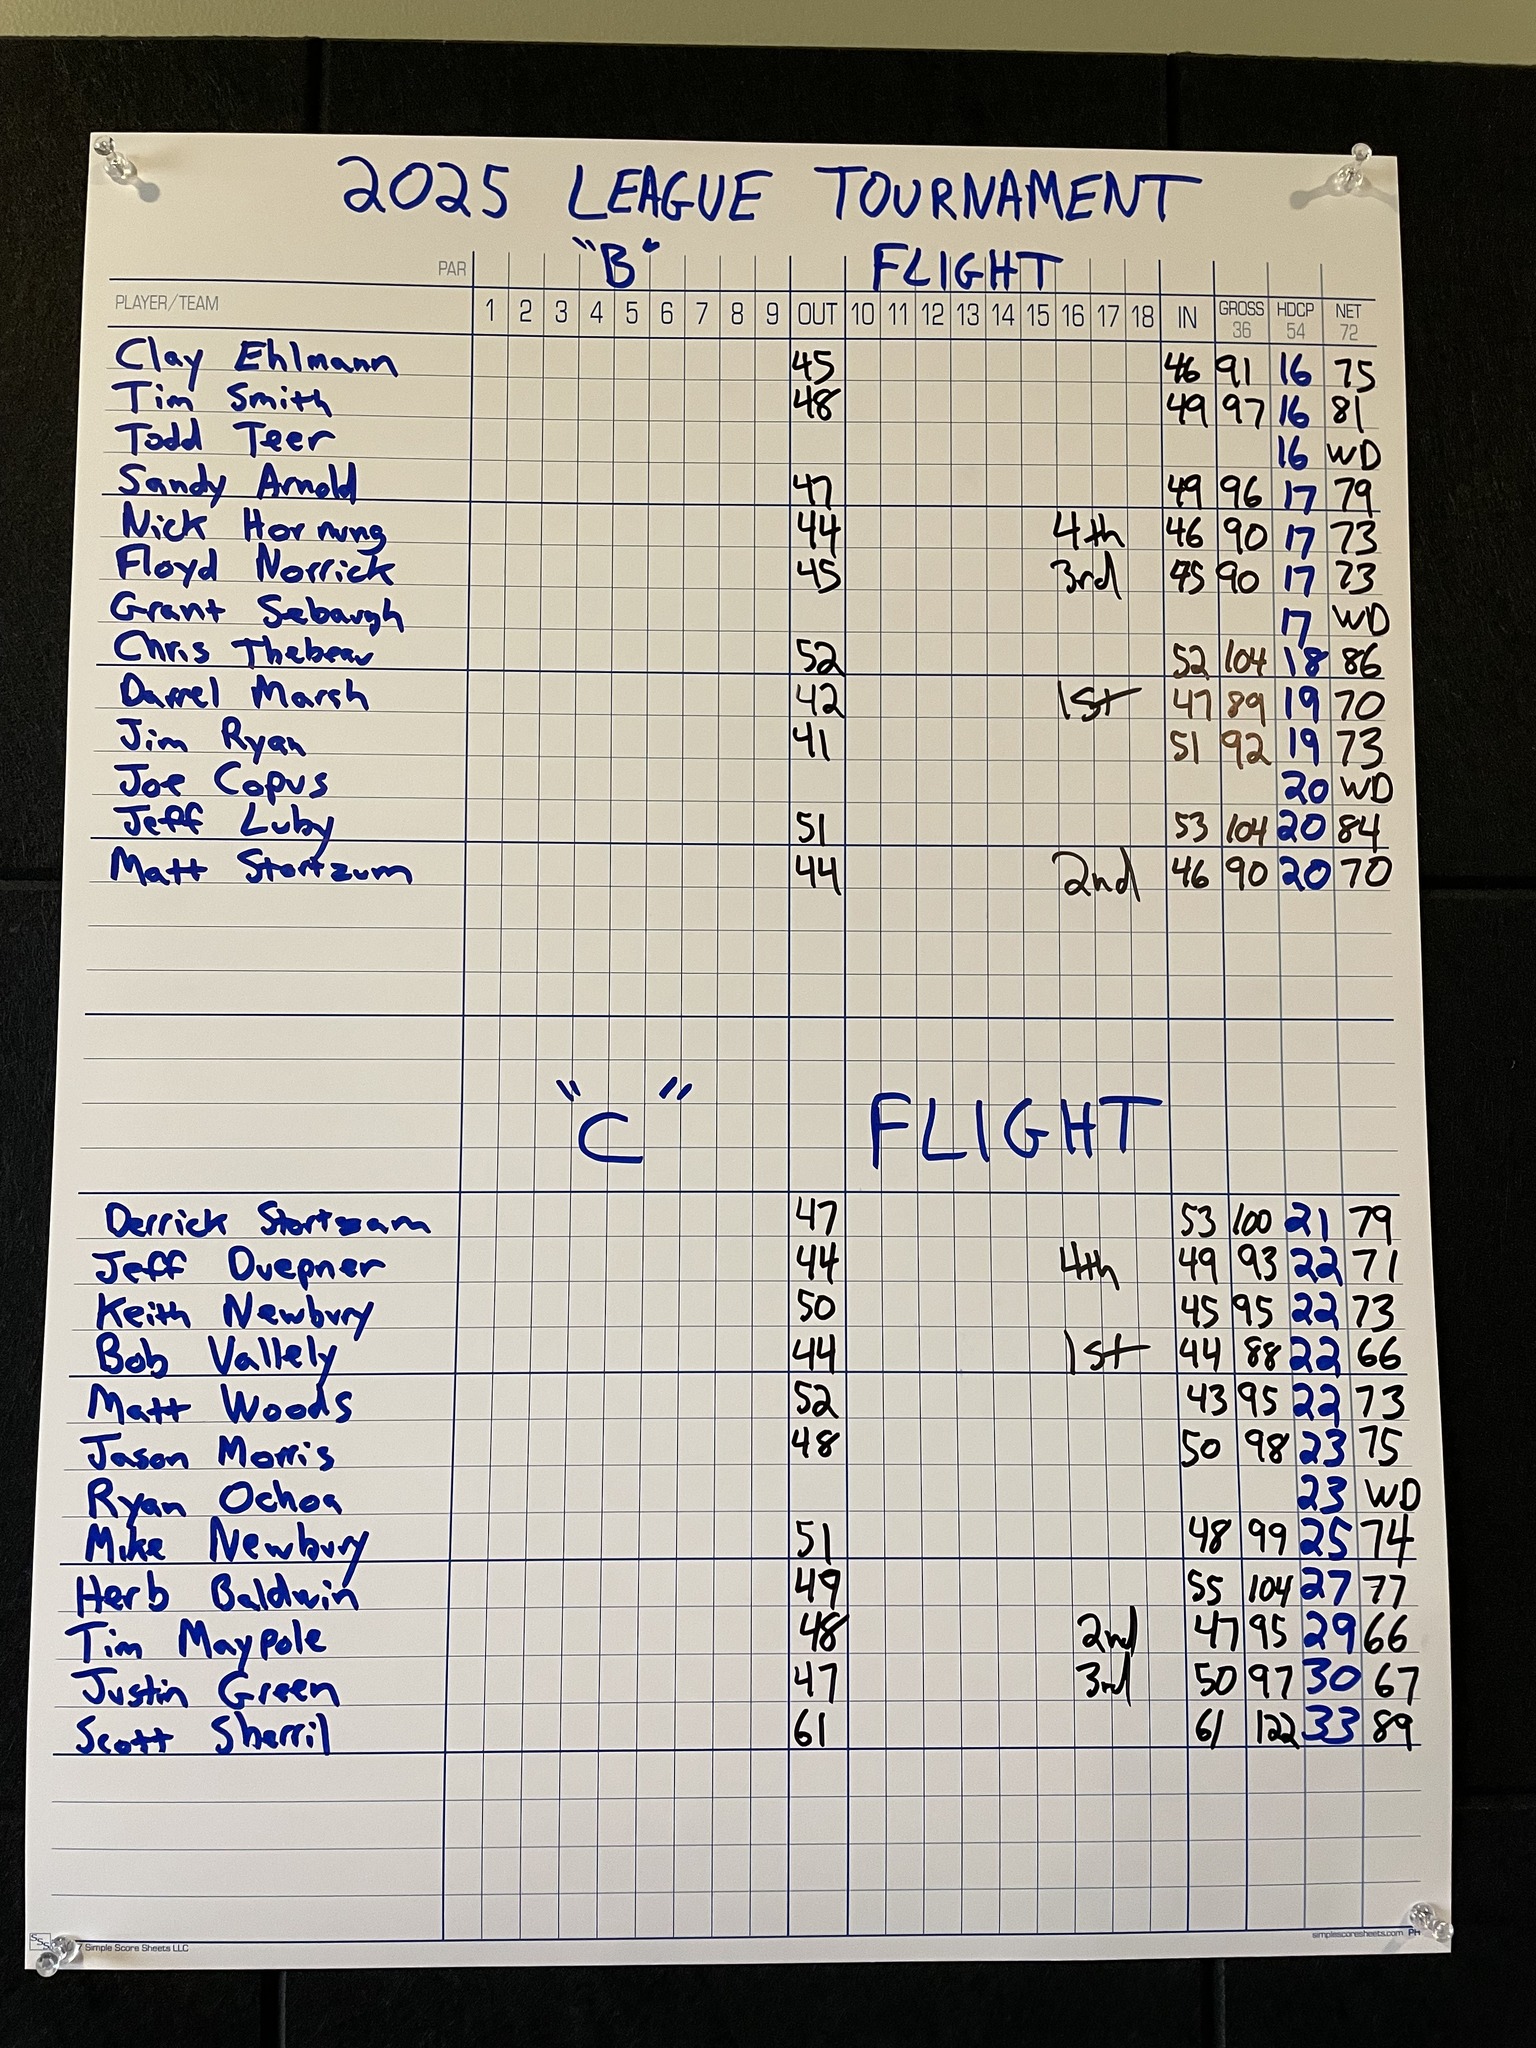 2025 LEAGUE TOURNAMENT
"B" FLIGHT
PAR
PLAYER/TEAM 1 2 3 4 5 6 7 8 9 OUT 10 11 12 13 14 15 16 17 18 IN GROSS 36 HDCP 54 NET 72
Clay Ehlmann 45 46 91 16 75
Tim Smith 48 49 97 16 81
Todd Teer 16 WD
Sandy Arnold 47 49 96 17 79
Nick Hornung 44 4th 46 90 17 73
Floyd Norrick 45 3rd 45 90 17 73
Grant Sebaugh 17 WD
Chris Thebeau 52 52 104 18 86
Darrel Marsh 42 1st 47 89 19 70
Jim Ryan 41 51 92 19 73
Joe Copus 20 WD
Jeff Luby 51 53 104 20 84
Matt Stortzum 44 2nd 46 90 20 70
"C" FLIGHT
Derrick Stortzum 47 53 100 21 79
Jeff Duepner 44 4th 49 93 22 71
Keith Newbury 50 45 95 22 73
Bob Vallely 44 1st 44 88 22 66
Matt Woods 52 43 95 22 73
Jason Morris 48 50 98 23 75
Ryan Ochoa 23 WD
Mike Newbury 51 48 99 25 74
Herb Baldwin 49 55 104 27 77
Tim Maypole 48 2nd 47 95 29 66
Justin Green 47 3rd 50 97 30 67
Scott Sherril 61 61 122 33 89
SSS 7 Simple Score Sheets LLC simplescoresheets.com PH